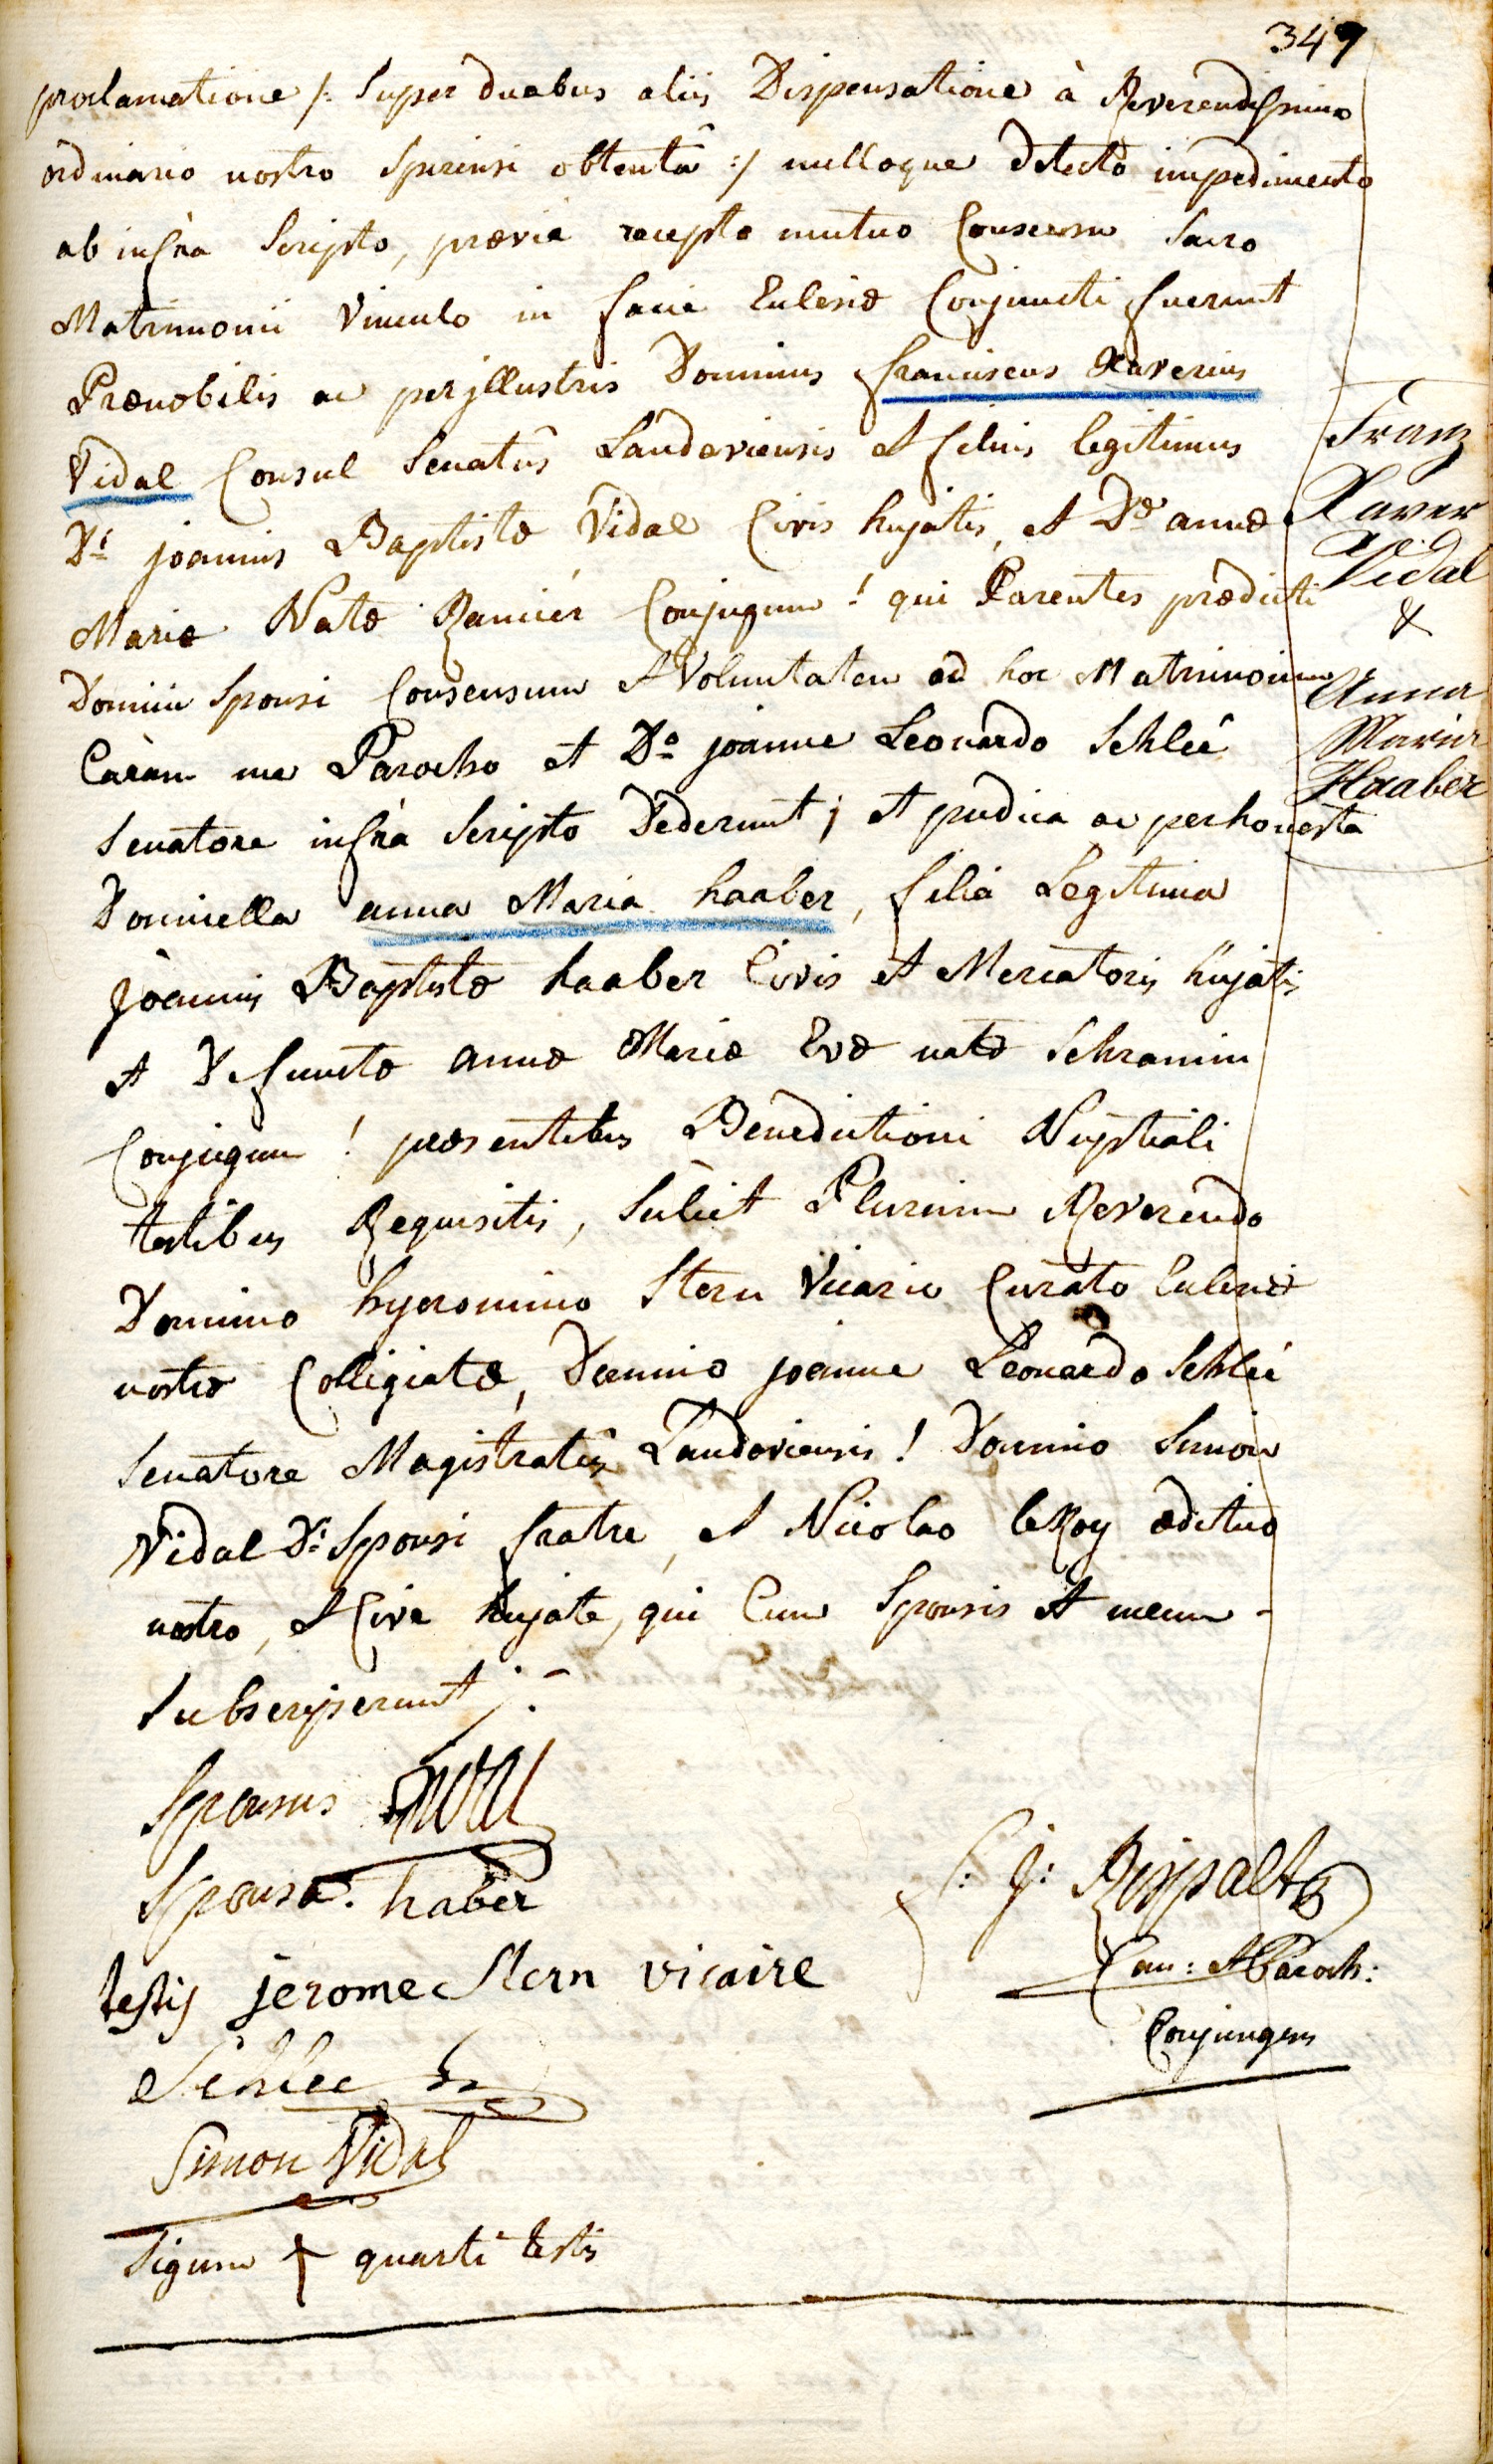 347
proclamatione /: Super duabus aliis Dispensatione à Reverendissimo
ordinario nostro Spirensi obtentâ :/ nulloque detecto impedimento
ab infra Scripto, prævie recepto mutuo Consensu Sacro
Matrimonii Vinculo in facie Eclesiæ Conjuncti fuerunt
Prænobilis ac perjllustris Dominus franciscus Xaverius
Vidal Consul Senatûs Landaviensis et filius legitimus
Di joannis Baptistæ Vidal Civis hujatis, et Dæ annæ
Mariæ Natæ Ramiér Conjugum ! qui Parentes prædicti
Domini Sponsi Consensum et Voluntatem ad hoc Matrimonium
Coràm me Parocho et Do joanne Leonardo Schleé
Senatore infrà Scripto Dederunt ; et pudica ac perhonesta
Domicella anna Maria haaber, filia Legitima
Joannis Baptistæ haaber Civis et Mercatoris hujatis
et Defunctæ annæ Mariæ Evæ natæ Schramin
Conjugum ! præsentibus Benedictioni Nuptiali
testibus Requisitis, Scilicet Plurimum Reverendo
Domino hyeronimo Stern Vicario Curato Eclesiæ
nostræ Collegiatæ, Domino joanne Leonardo Schleé
Senatore Magistratûs Landaviensis ! Domino Simon
Vidal Di Sponsi fratre, et Nicolao leRoy ædituo
nostro, et Cive hujate, qui Cum Sponsis et mecum -
Subscripserunt ;-
Franz
Xaver
Vidal
&
Anna
Maria
Haaber
Sponsus
Sponsa. haber
testis jerome Stern vicaire
Schlee
Simon Vidal
Signum + quarti testis
J: Rispalt
Can: et Paroch:
Conjungens